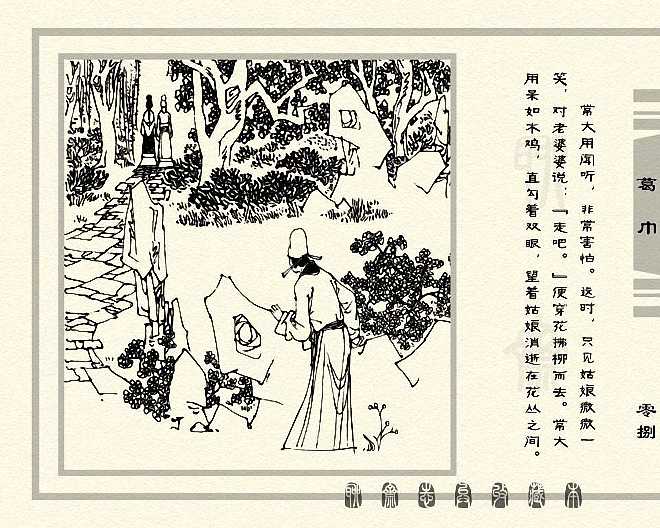 常大用闻听，非常害怕。这时，只见姑娘微微一
笑，对老婆婆说：『走吧。』便穿花拂柳而去。常大
用呆如木鸡，直勾着双眼，望着姑娘消逝在花丛之间。
葛巾
零捌